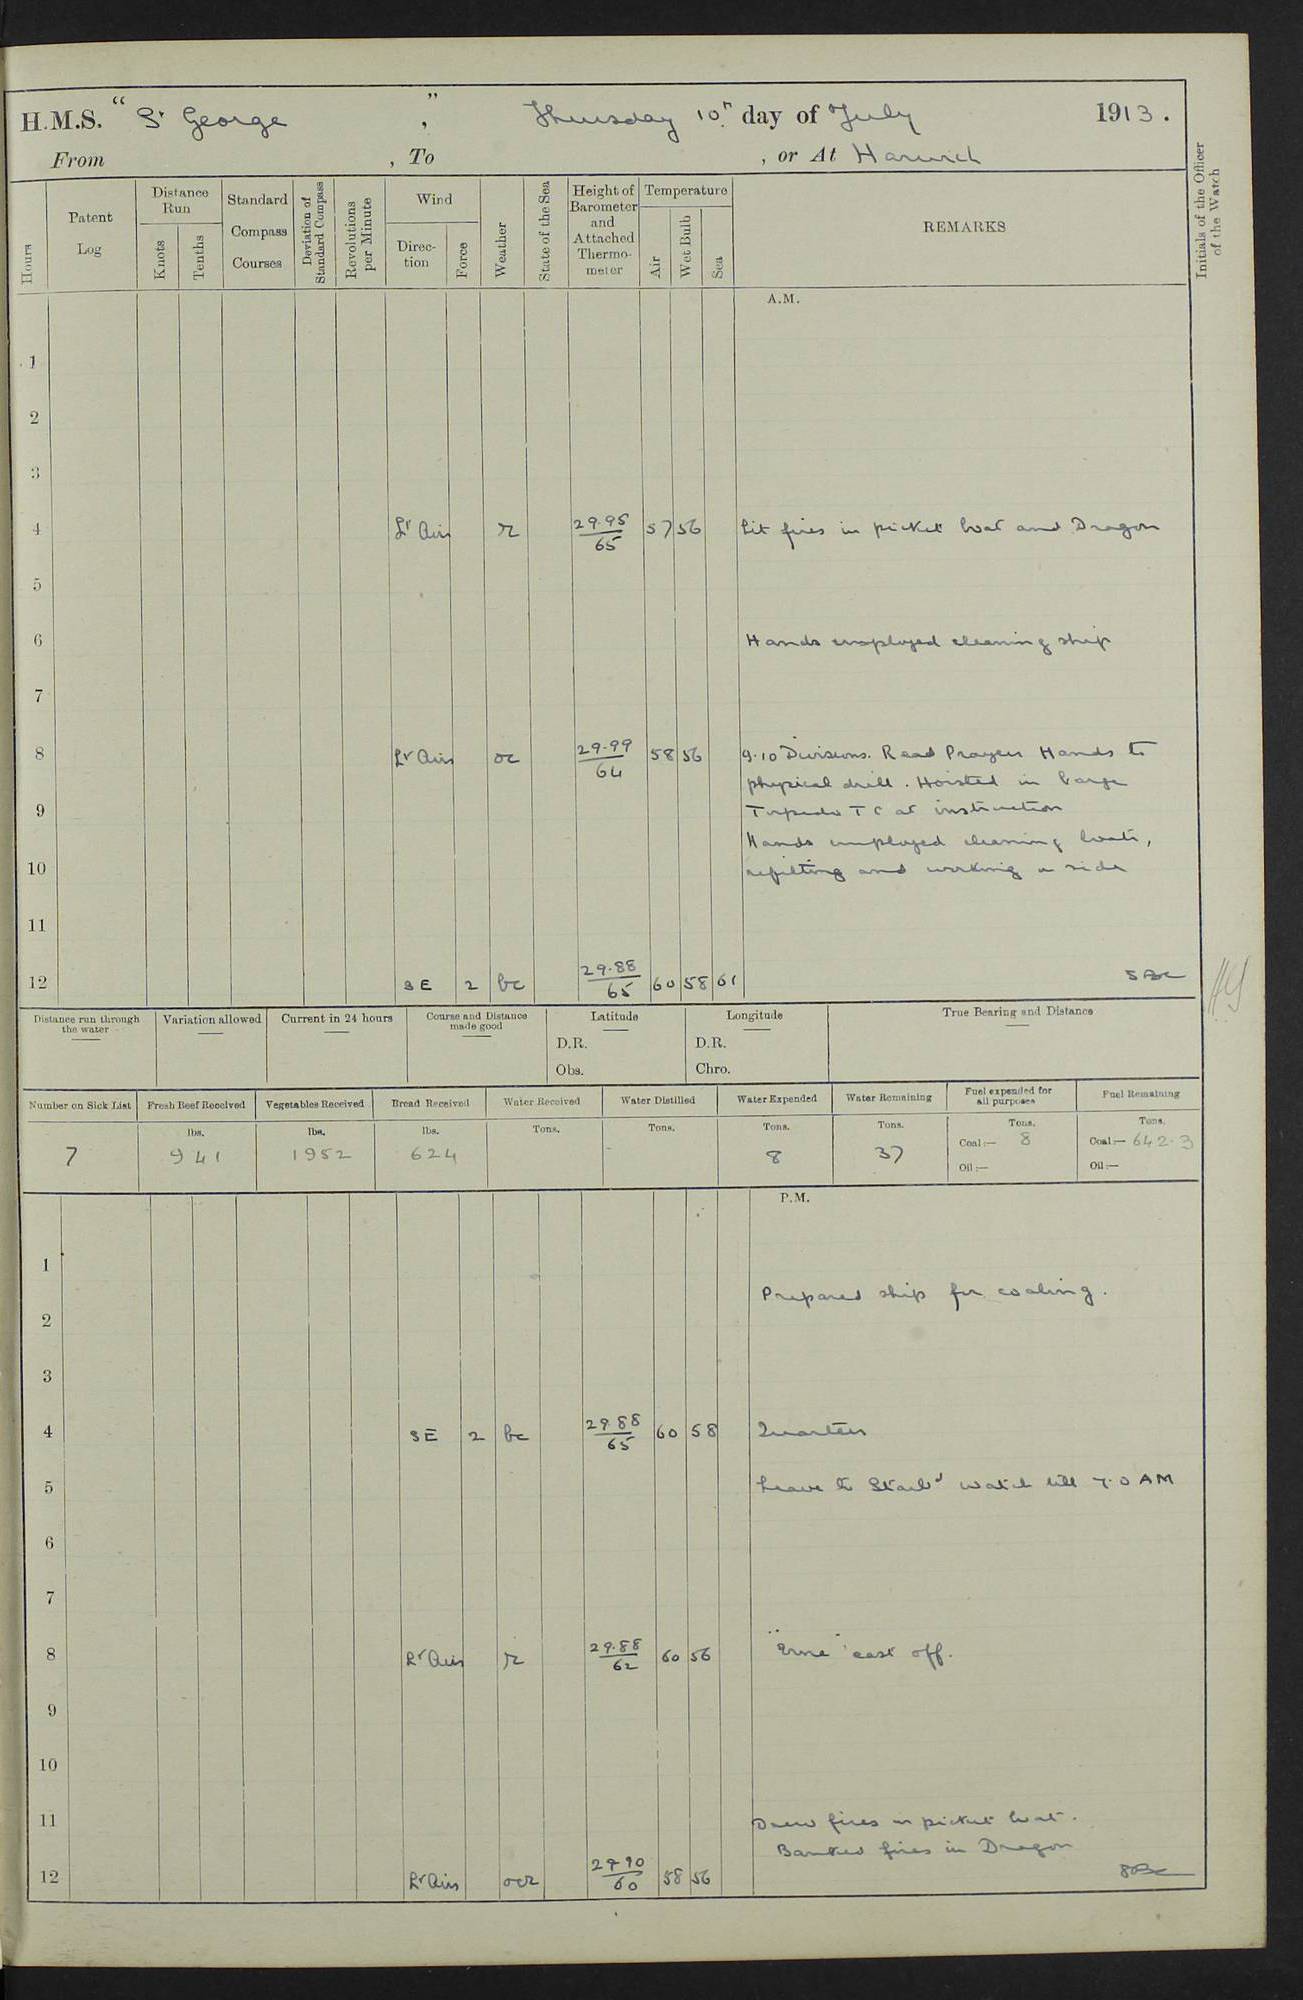 H.M.S. "St George", Thursday 10th day of July 1913.
From , To , or At Harwich
Hours
Patent Log
Distance Run
Knots
Tenths
Standard Compass Courses
Deviation of Standard Compass
Revolutions per Minute
Wind
Direction
Force
Weather
State of the Sea
Height of Barometer and Attached Thermometer
Temperature
Air
Wet Bulb
Sea
REMARKS
Initials of the Officer of the Watch
A.M.
1
2
3
4 Lt Airs r 29.95/65 57 56 Lit fires in picket boat and Dragon
5
6 Hands employed cleaning ship
7
8 Lt Airs oc 29.99/64 58 56 9.10 Divisions. Read Prayers Hands to
physical drill. Hoisted in barge
9 Torpedo T C at instruction
Hands employed cleaning boats,
10 refitting and working a side
11
12 SE 2 bc 29.88/65 60 58 61
Distance run through the water
Variation allowed
Current in 24 hours
Course and Distance made good
Latitude
D.R.
Obs.
Longitude
D.R.
Chro.
True Bearing and Distance
Number on Sick List 7
Fresh Beef Received lbs. 941
Vegetables Received lbs. 1952
Bread Received lbs. 624
Water Received Tons.
Water Distilled Tons. -
Water Expended Tons. 8
Water Remaining Tons. 37
Fuel expended for all purposes Tons. Coal:— 8 Oil:—
Fuel Remaining Tons. Coal:— 642.3 Oil:—
P.M.
1
Prepared ship for coaling.
2
3
4 SE 2 bc 29.88/65 60 58 Quarters
5 Leave to Starbd watch till 7.0 AM
6
7
8 Lt Airs r 29.88/62 60 56 "Erne" cast off.
9
10
11 Drew fires in picket boat.
Banked fires in Dragon
12 Lt Airs ocr 29.90/60 58 56